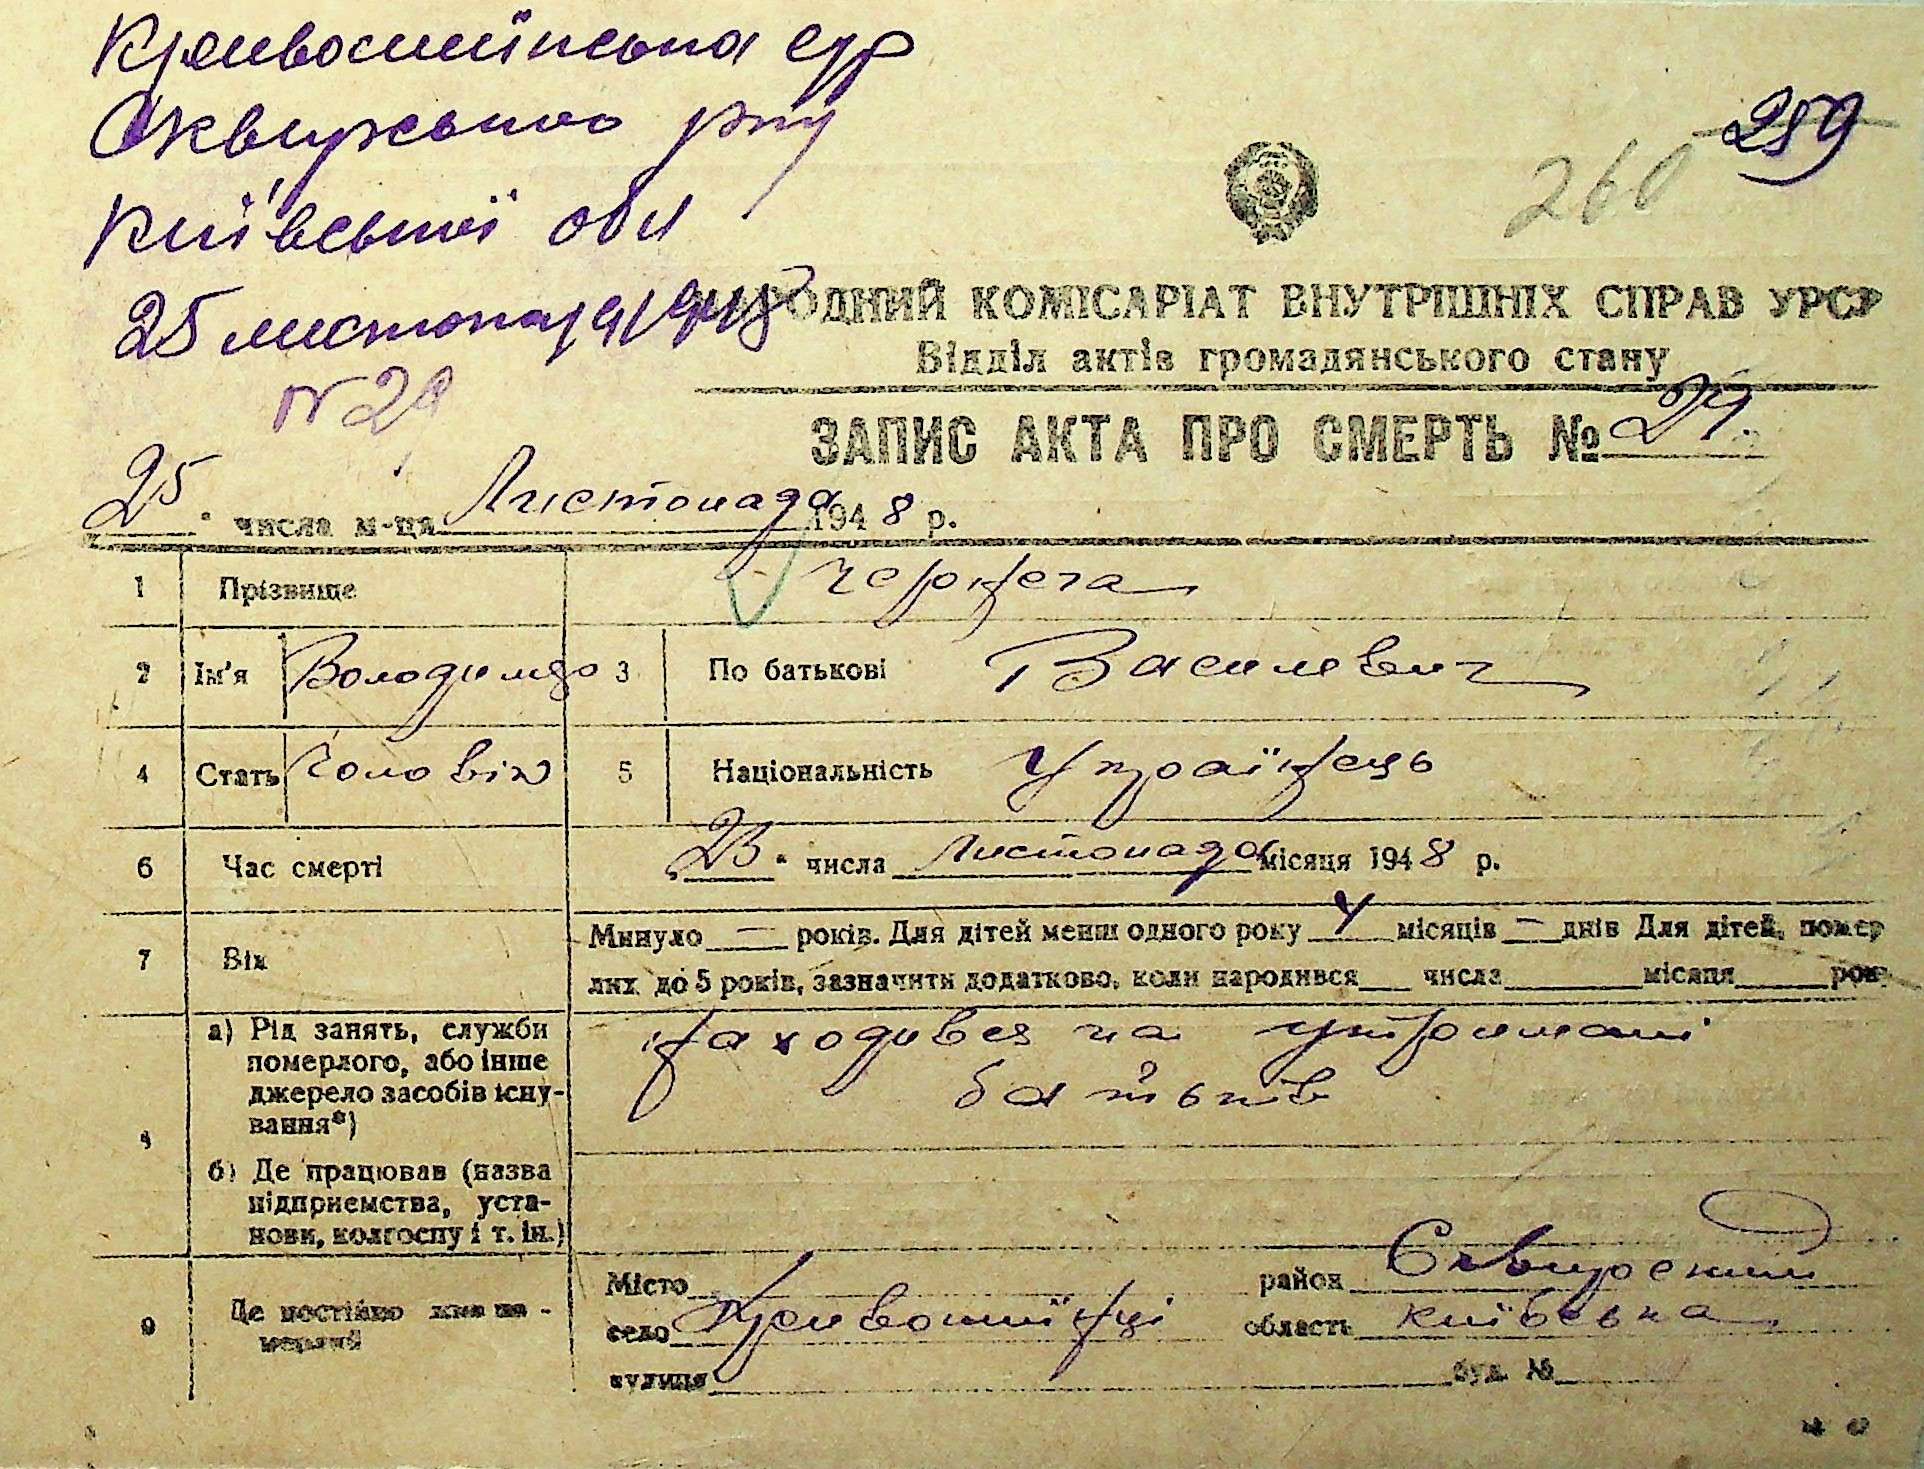 Кривошиїнська с/р
Сквирського р-ну
Київської обл
259
260
25 листопада 1948
НАРОДНИЙ КОМІСАРІАТ ВНУТРІШНІХ СПРАВ УРСР
Відділ актів громадянського стану
N 29
ЗАПИС АКТА ПРО СМЕРТЬ № 29.
25 " числа м-ця Листопада 1948 р.
1 Прізвище Чернега
2 Ім'я Володимир 3 По батькові Василевич
4 Стать Чоловік 5 Національність Українець
6 Час смерті "23" числа Листопада місяця 1948 р.
7 Вік Минуло — років. Для дітей менш одного року 4 місяців — днів Для дітей, помер
лих до 5 років, зазначити додатково, коли народився числа місяця рок
8 а) Рід занять, служби
померлого, або інше
джерело засобів існу-
вання*)
находився на утриманні
батьків
б) Де працював (назва
підприємства, уста-
нови, колгоспу і т. ін.)
9 Де постійно жив по-
мерлий
Місто район Сквирский
село Кривошиїнці область київська
вулиця буд. №